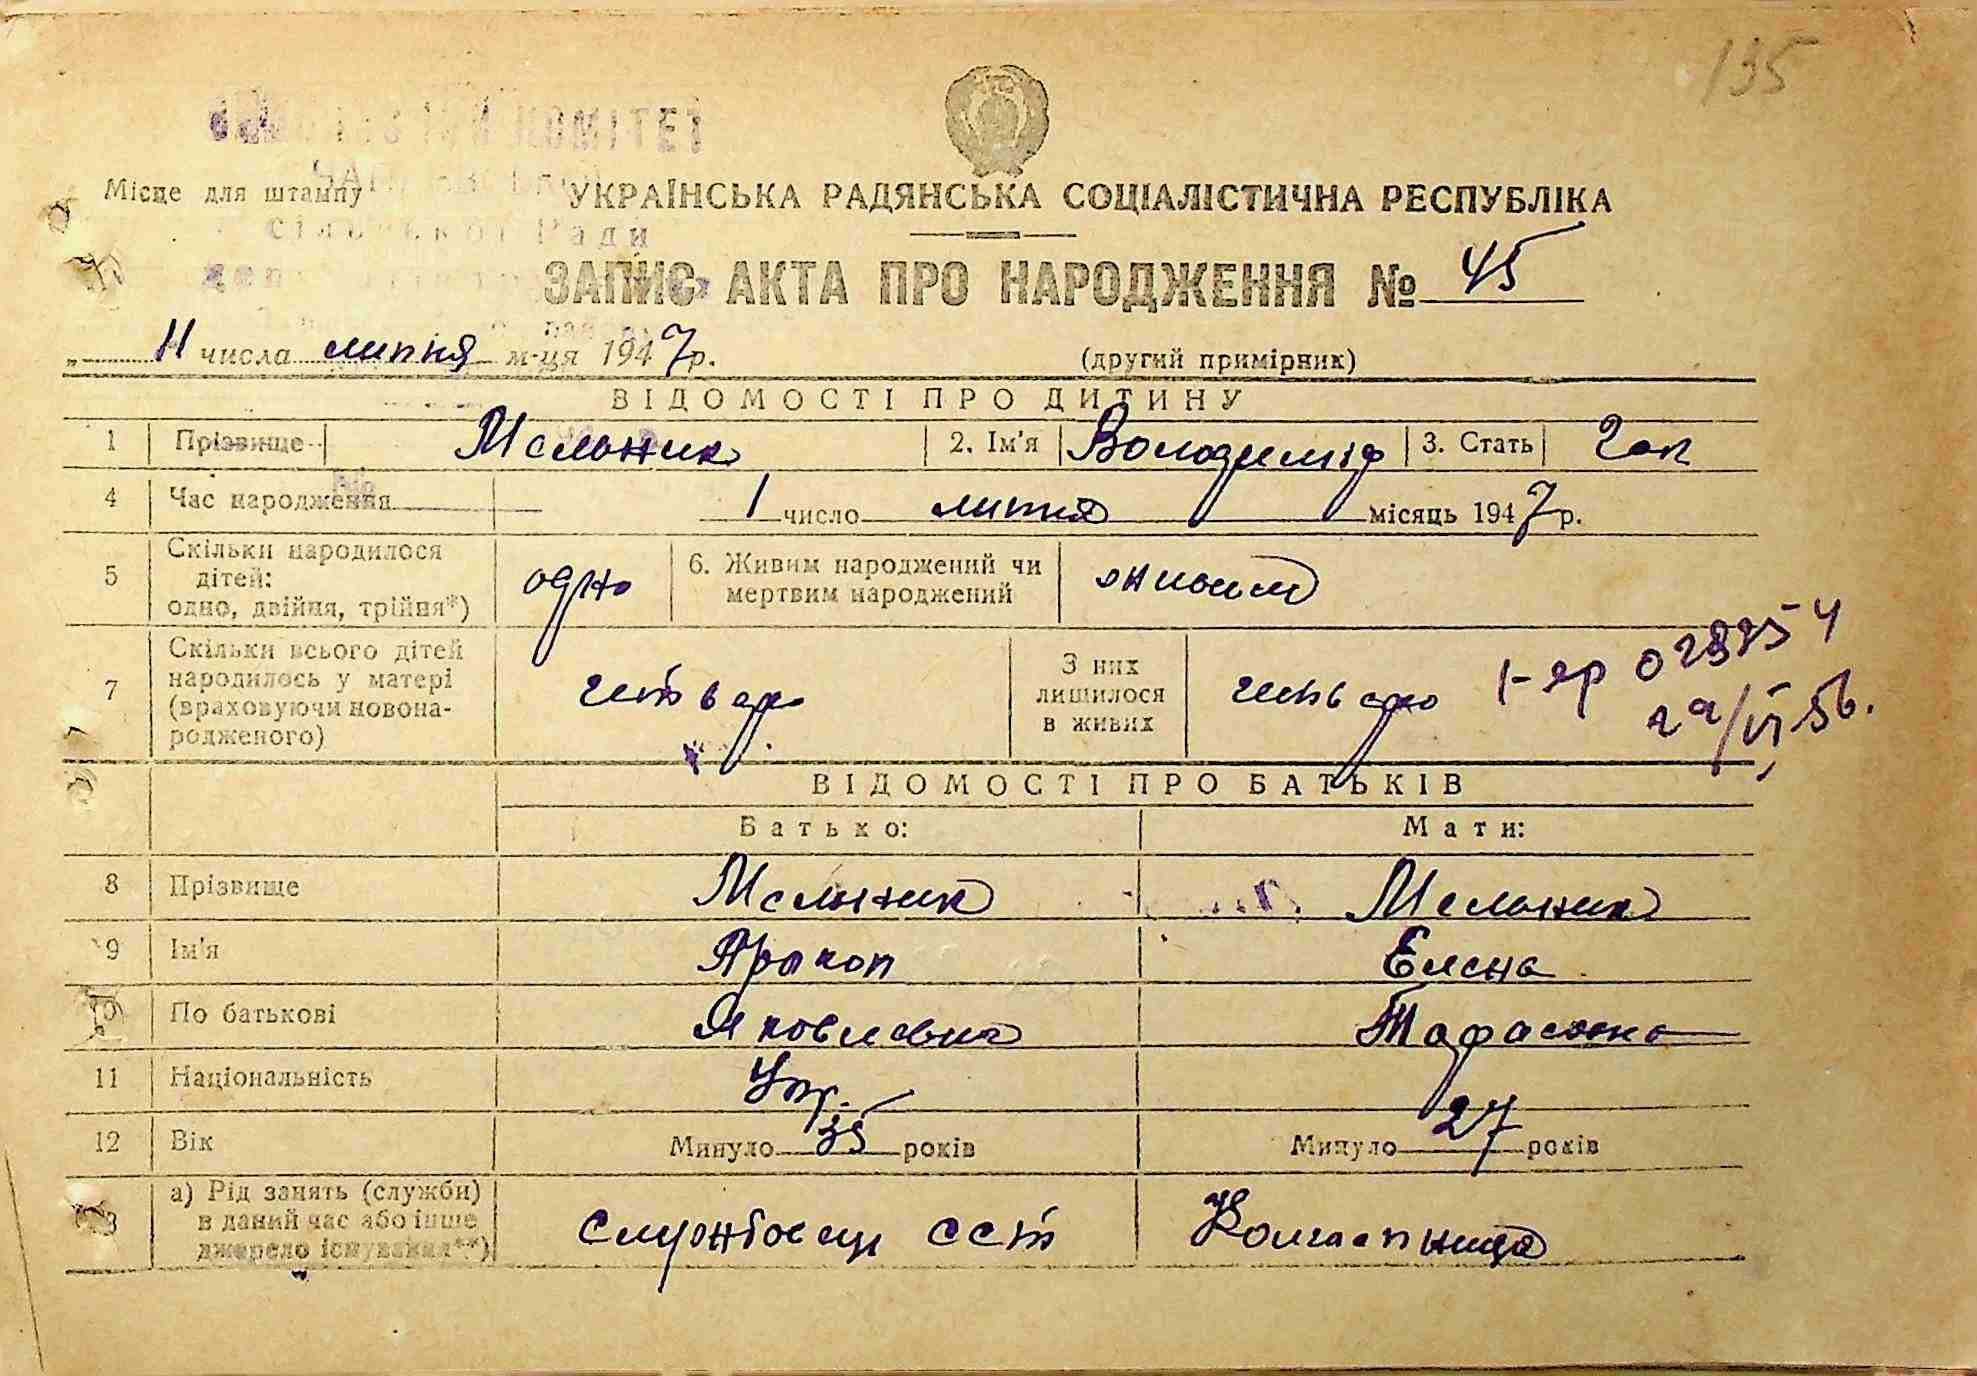 135
КОМІТЕТ
Місце для штампу
УКРАЇНСЬКА РАДЯНСЬКА СОЦІАЛІСТИЧНА РЕСПУБЛІКА
сільської Ради
ЗАПИС АКТА ПРО НАРОДЖЕННЯ № 45
„ 11 числа липня м-ця 1947 р. (другий примірник)
ВІДОМОСТІ ПРО ДИТИНУ
1 Прізвище Мельник 2. Ім'я Володимір 3. Стать Чол
4 Час народження 1 число липня місяць 1947 р.
5 Скільки народилося дітей: одно, двійня, трійня*) одно 6. Живим народжений чи мертвим народжений живим
7 Скільки всього дітей народилось у матері (враховуючи новонародженого) четверо З них лишилося в живих четверо
29/VI-56.
ВІДОМОСТІ ПРО БАТЬКІВ
Батько: Мати:
8 Прізвище Мельник Мельник
9 Ім'я Прокоп Елена
10 По батькові Яковлевич Тарасовна
11 Національність Укр.
12 Вік Минуло 35 років Минуло 27 років
13 а) Рід занять (служби) в даний час або інше джерело існування**) ССТ Колгоспниця